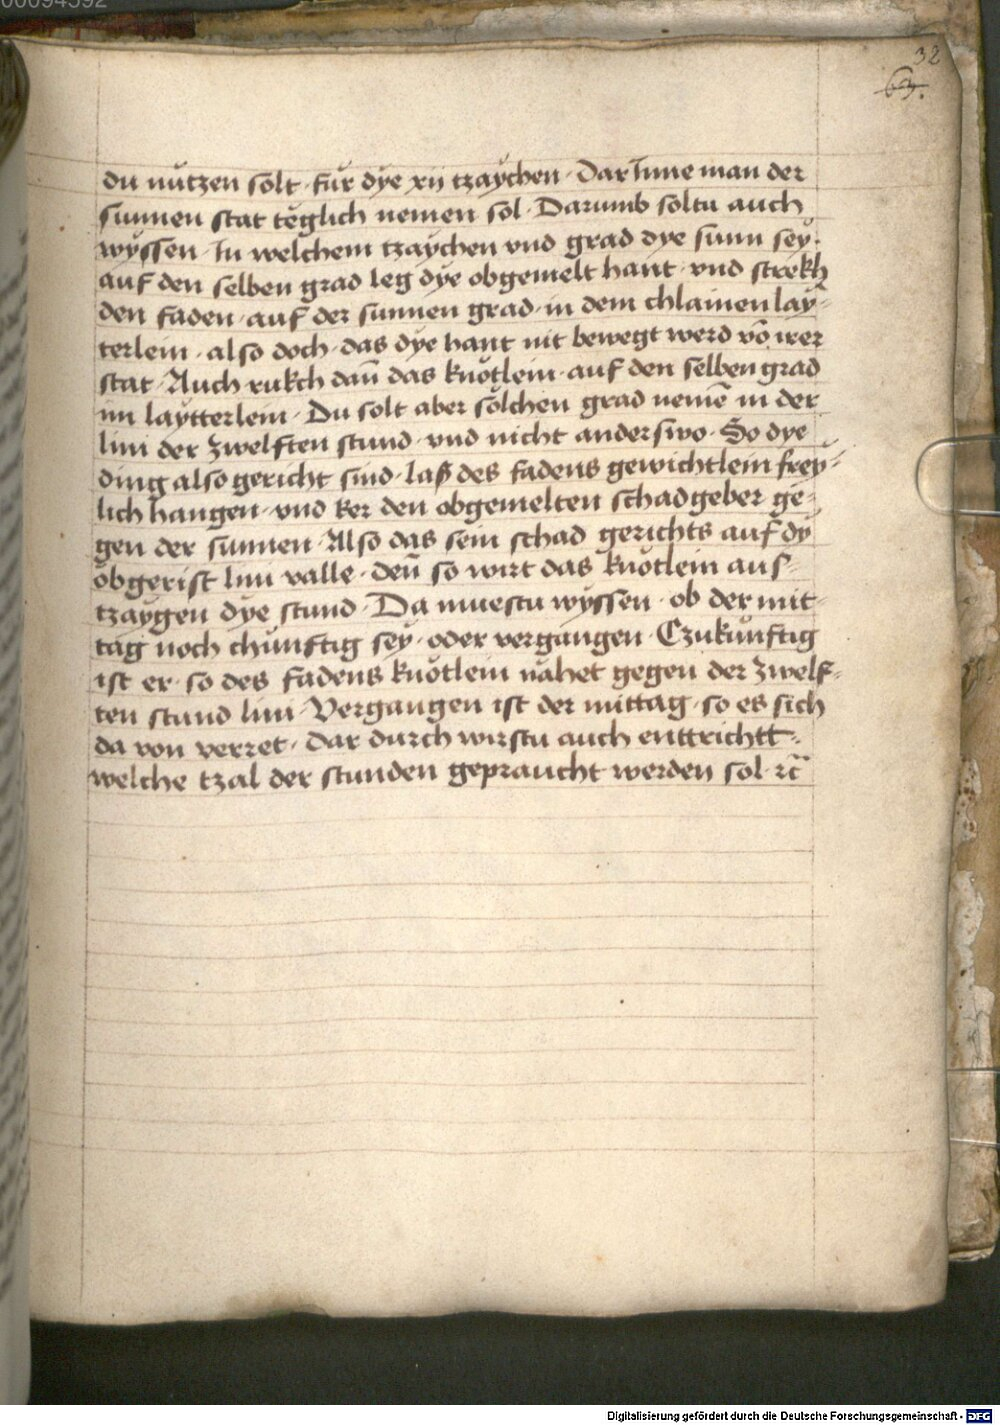 00094592
32
63.
du nützen solt · für dÿe xij tzaÿchen · Dar Inne man der
sunnen stat teglich nemen sol · Darumb soltu auch
wÿssen · In welchem tzaÿchen vnd grad dÿe sunn seÿ ·
auf den selben grad leg dÿe obgemelt hant · vnd strekh
den faden · auf der sunnen grad · in dem chlainen laÿ-
terlein · also doch · das dÿe hant nit bewegt werd vō irer
stat · Auch rukch dañ das knötlein · auf den selben grad
im laÿtterlein · Du solt aber sölchen grad nemē in der
lini der zwelften stund · vnd nicht anderswo · So dÿe
ding also gericht sind · laß des fadens gewichtlein freÿ-
lich hangen · vnd ker den obgemelten schadgeber ge-
gen der sunnen · Also das sein schad gerichts auf dÿ
öbgerist lini valle · deñ so wirt das knötlein aus-
tzaÿgen dÿe stund · Da muestu wÿssen · ob der mit-
tag noch chünftig seÿ · oder vergangen · Czukünftig
ist er · so des fadens knötlein nähet gegen der zwelf-
ten stund lini · Vergangen ist der mittag · so es sich
da von verret · dar durch wirstu auch enttrichtt ·
welche tzal der stunden gepraucht werden sol · rc̄
Digitalisierung gefördert durch die Deutsche Forschungsgemeinschaft - DFG